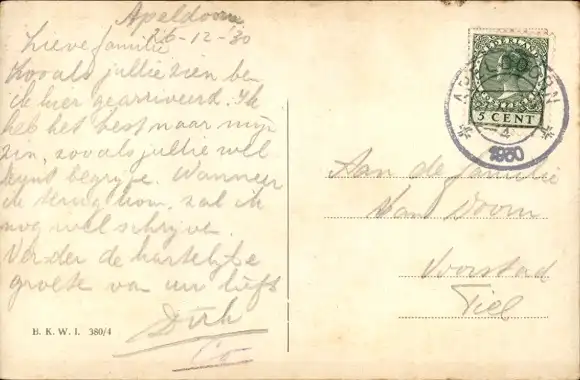 Apeldoorn
26-12-'30
Lieve familie
Zooals jullie zien ben
ik hier gearriveerd. Ik
heb het best naar mijn
zin, zooals jullie wel
kunt begrijpe. Wanneer
ik terug kom, zal ik
nog wel schrijve.
Verder de hartelijke
groete van uw liefh
Dirk
Co
B. K. W. I. 380/4
NEDERLAND
5 CENT
APELDOORN
4
1930
Aan de familie
van Doorn
Voorstad
Tiel